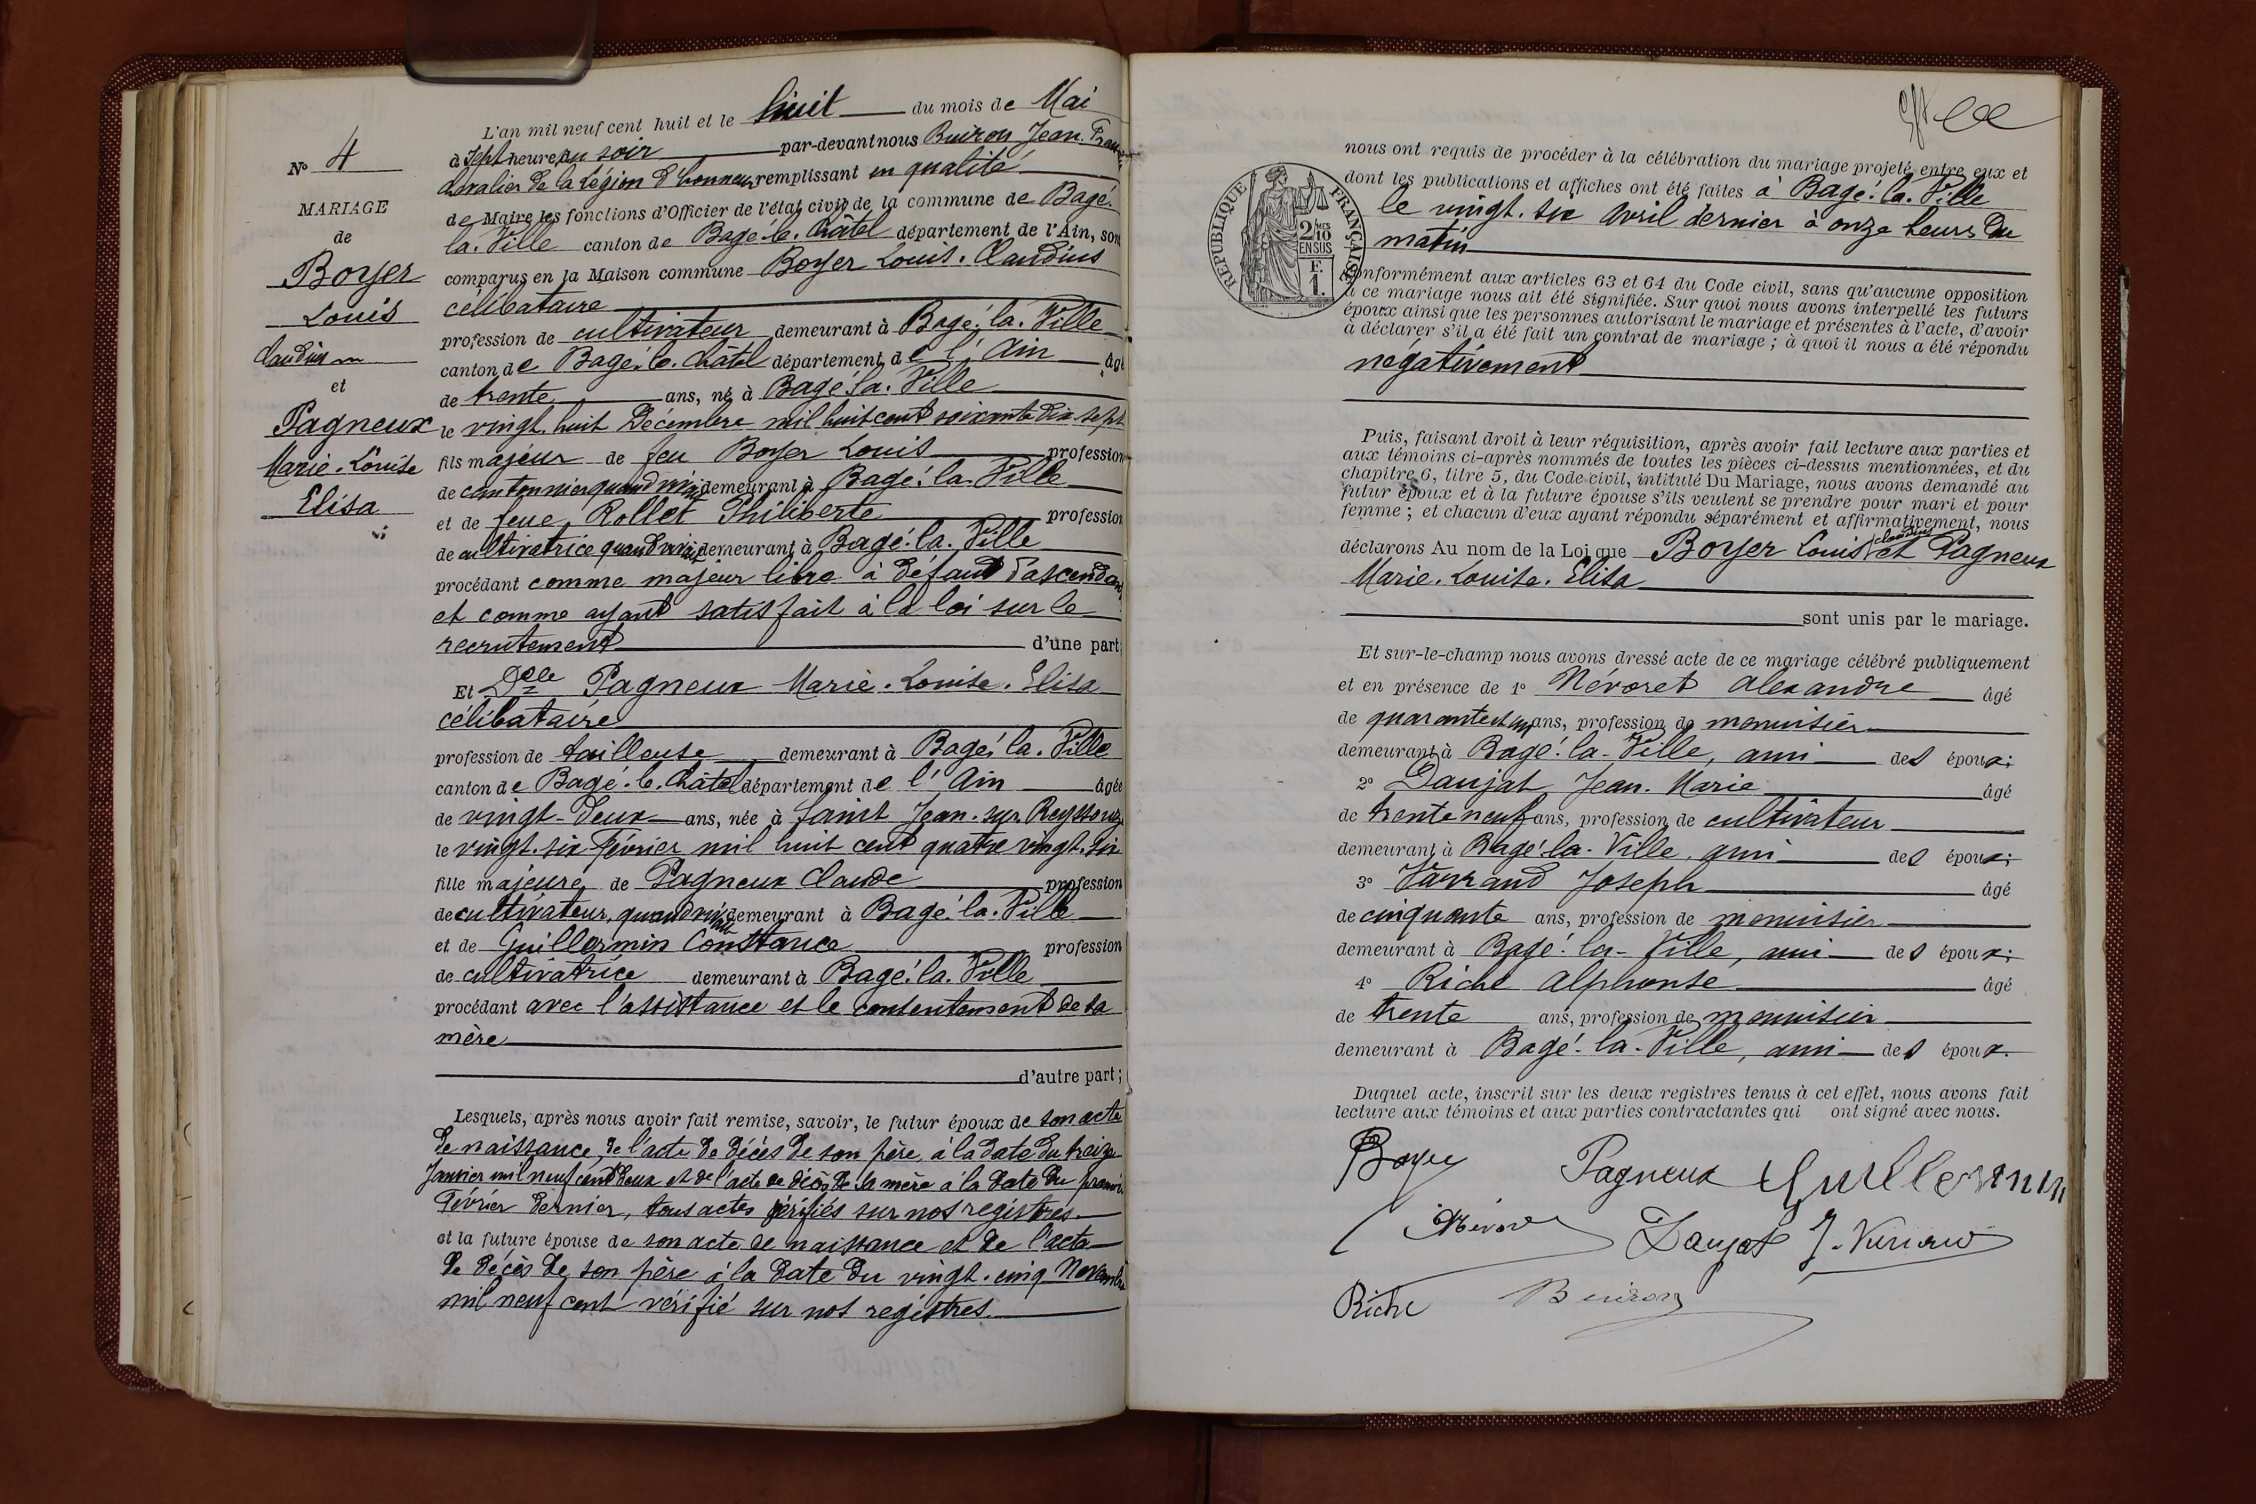 L'an mil neuf cent huit et le huit du mois de Mai
à sept heures du soir par-devant nous Buiron Jean
chevalier de la Légion d'honneur remplissant en qualité
de Maire les fonctions d'Officier de l'état civil de la commune de Bagé-
la-Ville canton de Bagé-le-Châtel département de l'Ain, sont
comparus en la Maison commune Boyer Louis-Claudius
célibataire
profession de cultivateur demeurant à Bagé-la-Ville
canton de Bagé-le-Châtel département de l'Ain âgé
de trente ans, né à Bagé-la-Ville
le vingt-huit Décembre mil huit cent soixante dix-sept
fils majeur de feu Boyer Louis profession
de cantonnier quand vivait demeurant à Bagé-la-Ville
et de feue Rollet Philiberte profession
de cultivatrice quand vivait demeurant à Bagé-la-Ville
procédant comme majeur libre à défaut d'ascendant
et comme ayant satisfait à la loi sur le
recrutement d'une part;
Et Delle Pagneux Marie-Louise-Elisa
célibataire
profession de tailleuse demeurant à Bagé-la-Ville
canton de Bagé-le-Châtel département de l'Ain âgée
de vingt-deux ans, née à Saint Jean-sur-Reyssouze
le vingt-six Février mil huit cent quatre vingt-six
fille majeure de Pagneux Claude profession
de cultivateur, quand vivait demeurant à Bagé-la-Ville
et de Guillermin Constance profession
de cultivatrice demeurant à Bagé-la-Ville
procédant avec l'assistance et le consentement de sa
mère
d'autre part;
Lesquels, après nous avoir fait remise, savoir, le futur époux de son acte
de naissance, de l'acte de décès de son père, à la date du treize
Janvier mil neuf cent deux et de l'acte de décès de sa mère à la date du premier
Février dernier, tous actes vérifiés sur nos registres
et la future épouse de son acte de naissance et de l'acte
de décès de son père à la date du vingt-cinq Novembre
mil neuf cent vérifié sur nos registres.
No 4
MARIAGE
de
Boyer
Louis
Claudius
et
Pagneux
Marie-Louise
Elisa
RÉPUBLIQUE FRANÇAISE
2/10
EN SUS
F.
1.
nous ont requis de procéder à la célébration du mariage projeté entre eux et
dont les publications et affiches ont été faites à Bagé-la-Ville
le vingt-six avril dernier à onze heures du
matin
conformément aux articles 63 et 64 du Code civil, sans qu'aucune opposition
à ce mariage nous ait été signifiée. Sur quoi nous avons interpellé les futurs
époux ainsi que les personnes autorisant le mariage et présentes à l'acte, d'avoir
à déclarer s'il a été fait un contrat de mariage; à quoi il nous a été répondu
négativement
Puis, faisant droit à leur réquisition, après avoir fait lecture aux parties et
aux témoins ci-après nommés de toutes les pièces ci-dessus mentionnées, et du
chapitre 6, titre 5, du Code civil, intitulé Du Mariage, nous avons demandé au
futur époux et à la future épouse s'ils veulent se prendre pour mari et pour
femme; et chacun d'eux ayant répondu séparément et affirmativement, nous
déclarons Au nom de la Loi que Boyer Louis claudius et Pagneux
Marie-Louise-Elisa
sont unis par le mariage.
Et sur-le-champ nous avons dressé acte de ce mariage célébré publiquement
et en présence de 1° Névoret Alexandre âgé
de quarante et un ans, profession de menuisier
demeurant à Bagé-la-Ville, ami des époux;
2° Daujat Jean-Marie âgé
de trente neuf ans, profession de cultivateur
demeurant à Bagé-la-Ville, ami des époux;
3° Varrand Joseph âgé
de cinquante ans, profession de menuisier
demeurant à Bagé-la-Ville, ami des époux;
4° Riche Alphonse âgé
de trente ans, profession de menuisier
demeurant à Bagé-la-Ville, ami des époux.
Duquel acte, inscrit sur les deux registres tenus à cet effet, nous avons fait
lecture aux témoins et aux parties contractantes qui ont signé avec nous.
Boyer Pagneux Guillermin
Névoret Daujat
Riche Buiron